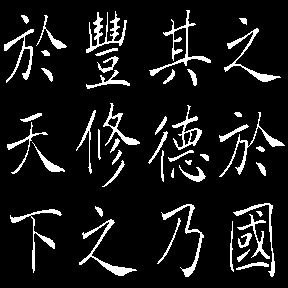 之於國
其德乃
豐修之
於天下